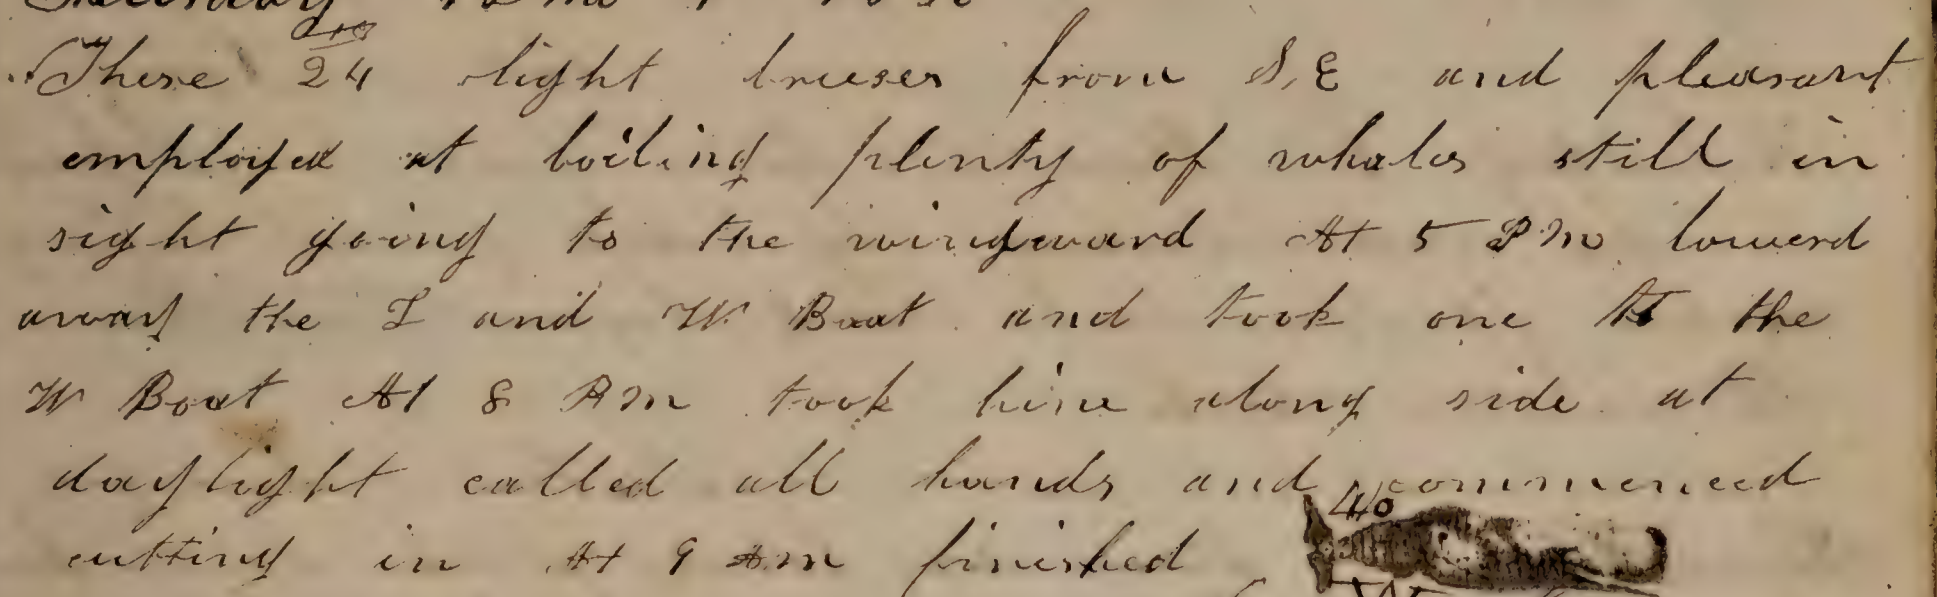 These 24 light breeses from S,E and pleasant
employed at boiling plenty of whales still in
sight going to the windward At 5 PM lowerd
away the L and W Boat and took one to the
W Boat At 8 PM took him along side at
daylight called all hands and commenced
cutting in At 9 AM finished
40